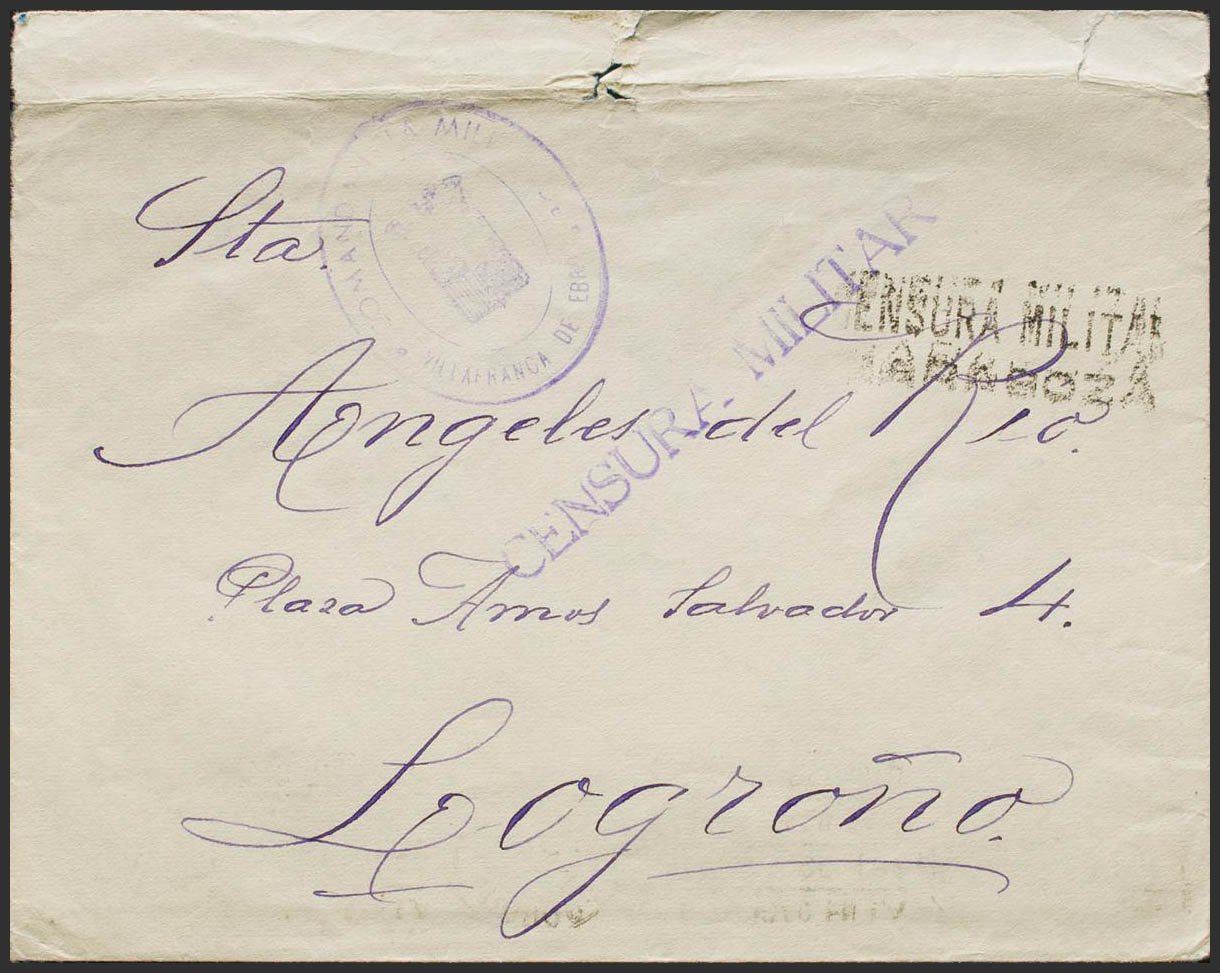 MILI
VILLAFRANCA DE EBRO
Sta.
CENSURA MILITAR
CENSURA MILITAR
ZARAGOZA
Angeles del Rio.
Plaza Amos Salvador 4.
Logroño.